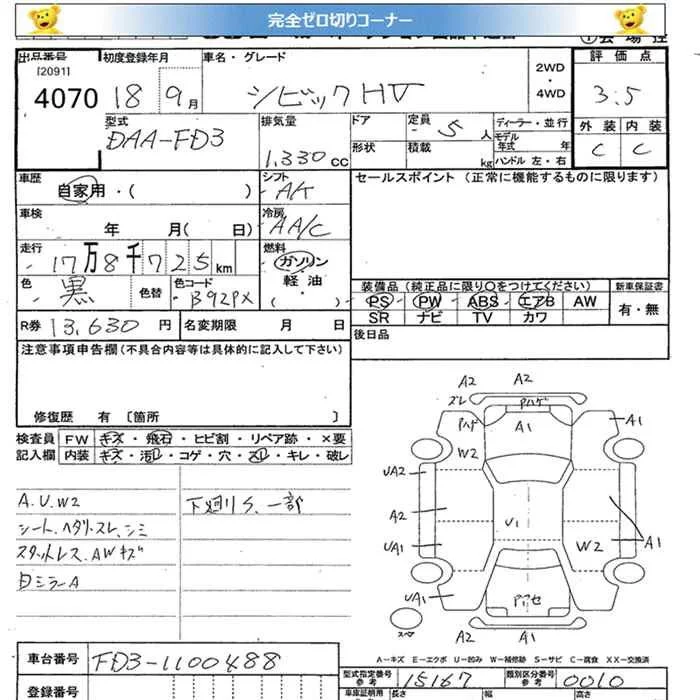 完全ゼロ切りコーナー
出品番号 初度登録年月 車名・グレード 2WD・4WD 評価点
[2091]
4070 18 9月 シビックHV 3.5
型式 排気量 ドア 定員 5人 ディーラー・並行 外装 内装
DAA-FD3 1,330cc 形状 積載 kg モデル年式 年 C C
ハンドル 左・右
車歴 シフト セールスポイント (正常に機能するものに限ります)
自家用・( ) AK
車検 冷房
年 月( 日) AA/C
走行 燃料
17万8千725km ガソリン
色 色替 色コード 軽油 装備品(純正品に限り○をつけてください) 新車保証書
黒 B92PX ( ) PS PW ABS エアB AW 有・無
R券 13,630円 名変期限 月 日 SR ナビ TV カワ
後日品
注意事項申告欄(不具合内容等は具体的に記入して下さい)
修復歴 有〔箇所 〕
検査員 FW キズ・飛石・ヒビ割・リペア跡・×要
記入欄 内装 キズ・汚レ・コゲ・穴・スレ・キレ・破レ
A.U.W2 下廻りS、一部
シート、ヘタリ・スレ、シミ
スタットレス、AWキズ
ミラーA
A2 A2
スレ Pハゲ
Pハゲ A1 A1
W2
UA2
A2 U1
UA1 W2 A1
UA1
スペア
A2 A1
A-キズ E-エクボ U-凹み W-補修跡 S-サビ C-腐食 XX-交換済
車台番号 FD3-1100488
型式指定番号 参考 15167 類別区分番号 参考 0010
登録番号 車庫証明用 参考 長さ 幅 高さ